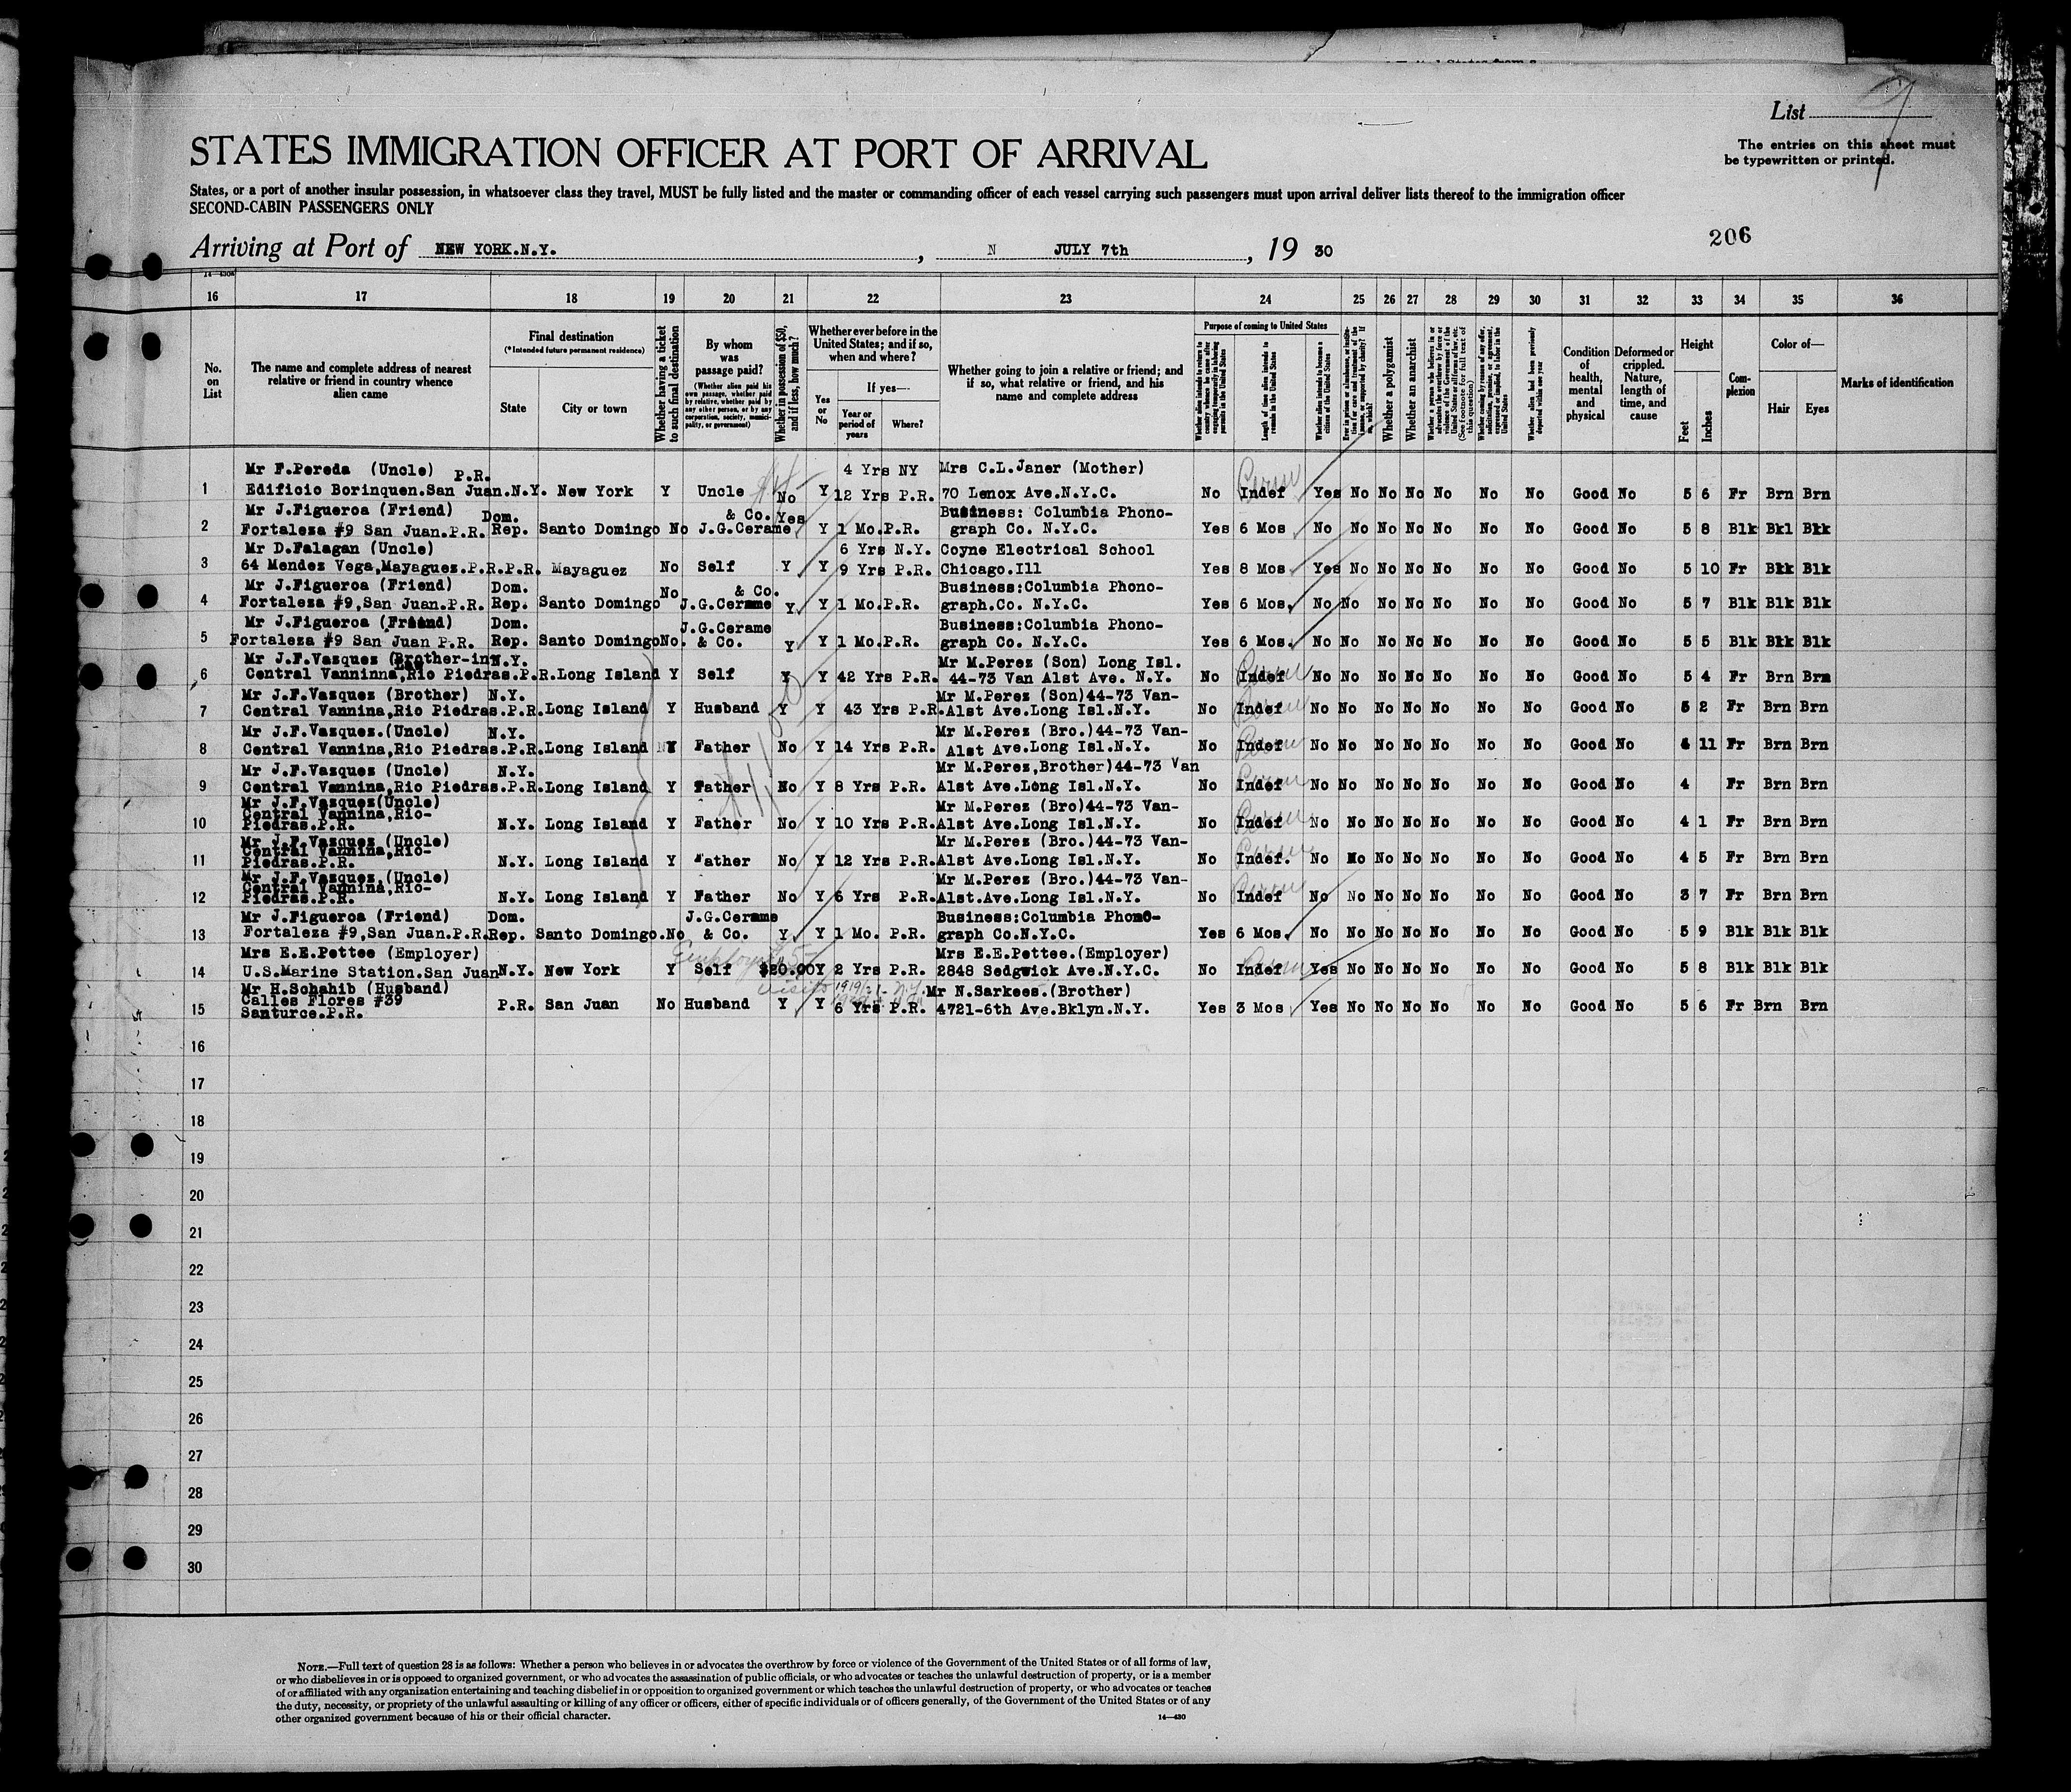 List
STATES IMMIGRATION OFFICER AT PORT OF ARRIVAL
The entries on this sheet must
be typewritten or printed.
States, or a port of another insular possession, in whatsoever class they travel, MUST be fully listed and the master or commanding officer of each vessel carrying such passengers must upon arrival deliver lists thereof to the immigration officer
SECOND-CABIN PASSENGERS ONLY
206
Arriving at Port of NEW YORK.N.Y. , N JULY 7th , 19 30
16 17 18 19 20 21 22 23 24 25 26 27 28 29 30 31 32 33 34 35 36
No. on List
The name and complete address of nearest relative or friend in country whence alien came
Final destination
(*Intended future permanent residence)
State
City or town
Whether having a ticket to such final destination
By whom was passage paid?
(Whether alien paid his own passage, whether paid by relative, whether paid by any other person, or by any corporation, society, municipality, or government)
Whether in possession of $50, and if less, how much?
Whether ever before in the United States; and if so, when and where?
Yes or No
If yes—
Year or period of years
Where?
Whether going to join a relative or friend; and if so, what relative or friend, and his name and complete address
Purpose of coming to United States
Length of time alien intends to remain in the United States
Whether alien intends to become a citizen of the United States
Whether a polygamist
Whether an anarchist
Condition of health, mental and physical
Deformed or crippled. Nature, length of time, and cause
Height
Feet
Inches
Complexion
Color of—
Hair
Eyes
Marks of identification
Mr F.Pereda (Uncle) P.R. 4 Yrs NY Mrs C.L.Janer (Mother)
1 Edificio Borinquen.San Juan.N.Y. New York Y Uncle No Y 12 Yrs P.R. 70 Lenox Ave.N.Y.C. No Indef Yes No No No No No No Good No 5 6 Fr Brn Brn
Mr J.Figueroa (Friend) Dom. & Co. Yes Business: Columbia Phono-
2 Fortaleza #9 San Juan.P.R. Rep. Santo Domingo No J.G.Cerame Y 1 Mo.P.R. graph Co. N.Y.C. Yes 6 Mos No No No No No No No Good No 5 8 Blk Bkl Blk
Mr D.Falagan (Uncle) 6 Yrs N.Y. Coyne Electrical School
3 64 Mendez Vega,Mayaguez.P.R.P.R. Mayaguez No Self Y Y 9 Yrs P.R. Chicago.Ill Yes 8 Mos Yes No No No No No No Good No 5 10 Fr Blk Blk
Mr J.Figueroa (Friend) Dom. No & Co. Business:Columbia Phono-
4 Fortaleza #9,San Juan.P.R. Rep. Santo Domingo J.G.Cerame Y. Y 1 Mo.P.R. graph.Co. N.Y.C. Yes 6 Mos. No No No No No No No Good No 5 7 Blk Blk Blk
Mr J.Figueroa (Friend) Dom. J.G.Cerame Business:Columbia Phono-
5 Fortaleza #9 San Juan P.R. Rep. Santo Domingo No. & Co. Y Y 1 Mo.P.R. graph Co. N.Y.C. Yes 6 Mos. No No No No No No No Good No 5 5 Blk Blk Blk
Mr J.F.Vasquez (Brother-in Law N.Y. Mr M.Perez (Son) Long Isl.
6 Central Vanninna,Rio Piedras.P.R.Long Island Y Self Y Y 42 Yrs P.R. 44-73 Van Alst Ave. N.Y. No Indef No No No No No No No Good No 5 4 Fr Brn Brn
Mr J.F.Vasquez (Brother) N.Y. Mr M.Perez (Son)44-73 Van-
7 Central Vannina,Rio Piedras.P.R.Long Island Y Husband Y Y 43 Yrs P.R. Alst Ave.Long Isl.N.Y. No Indef No No No No No No No Good No 5 2 Fr Brn Brn
Mr J.F.Vasquez.(Uncle) N.Y. Mr M.Perez (Bro.)44-73 Van-
8 Central Vannina,Rio Piedras.P.R.Long Island Y Father No Y 14 Yrs P.R. Alst Ave.Long Isl.N.Y. No Indef No No No No No No No Good No 4 11 Fr Brn Brn
Mr J.F.Vasquez (Uncle) N.Y. Mr M.Perez,Brother)44-73 Van
9 Central Vannina,Rio Piedras.P.R.Long Island Y Father No Y 8 Yrs P.R. Alst Ave.Long Isl.N.Y. No Indef No No No No No No No Good No 4 Fr Brn Brn
Mr J.F.Vasquez(Uncle) Mr M.Perez (Bro)44-73 Van-
Central Vannina,Rio-
10 Piedras.P.R. N.Y. Long Island Y Father No Y 10 Yrs P.R. Alst Ave.Long Isl.N.Y. No Indef No No No No No No No Good No 4 1 Fr Brn Brn
Mr J.F.Vasquez (Uncle) Mr M.Perez (Bro.)44-73 Van-
Central Vannina,Rio-
11 Piedras.P.R. N.Y. Long Island Y Father No Y 12 Yrs P.R. Alst Ave.Long Isl.N.Y. No Indef. No No No No No No No Good No 4 5 Fr Brn Brn
Mr J.F.Vasquez,(Uncle) Mr M.Perez (Bro.)44-73 Van-
Central Vannina,Rio-
12 Piedras.P.R. N.Y. Long Island Y Father No Y 6 Yrs P.R. Alst.Ave.Long Isl.N.Y. No Indef No No No No No No No Good No 3 7 Fr Brn Brn
Mr J.Figueroa (Friend) Dom. J.G.Cerame Business:Columbia Phono-
13 Fortaleza #9,San Juan.P.R. Rep. Santo Domingo.No & Co. Y. Y 1 Mo. P.R. graph Co.N.Y.C. Yes 6 Mos. No No No No No No No Good No 5 9 Blk Blk Blk
Mrs E.E.Pettee (Employer) Mrs E.E.Pettee.(Employer)
14 U.S.Marine Station.San Juan N.Y. New York Y Self $20.00 Y 2 Yrs P.R. 2848 Sedgwick Ave.N.Y.C. No Indef Yes No No No No No No Good No 5 8 Blk Blk Blk
Mr H.Schahib (Husband) Mr N.Sarkees.(Brother)
Calles Flores #39
15 Santurce.P.R. P.R. San Juan No Husband Y Y 6 Yrs P.R. 4721-6th Ave.Bklyn.N.Y. Yes 3 Mos Yes No No No No No No Good No 5 6 Fr Brn Brn
16
17
18
19
20
21
22
23
24
25
26
27
28
29
30
NOTE.—Full text of question 28 is as follows: Whether a person who believes in or advocates the overthrow by force or violence of the Government of the United States or of all forms of law,
or who disbelieves in or is opposed to organized government, or who advocates the assassination of public officials, or who advocates or teaches the unlawful destruction of property, or is a member
of or affiliated with any organization entertaining and teaching disbelief in or opposition to organized government or which teaches the unlawful destruction of property, or who advocates or teaches
the duty, necessity, or propriety of the unlawful assaulting or killing of any officer or officers, either of specific individuals or of officers generally, of the Government of the United States or of any
other organized government because of his or their official character.
14—430